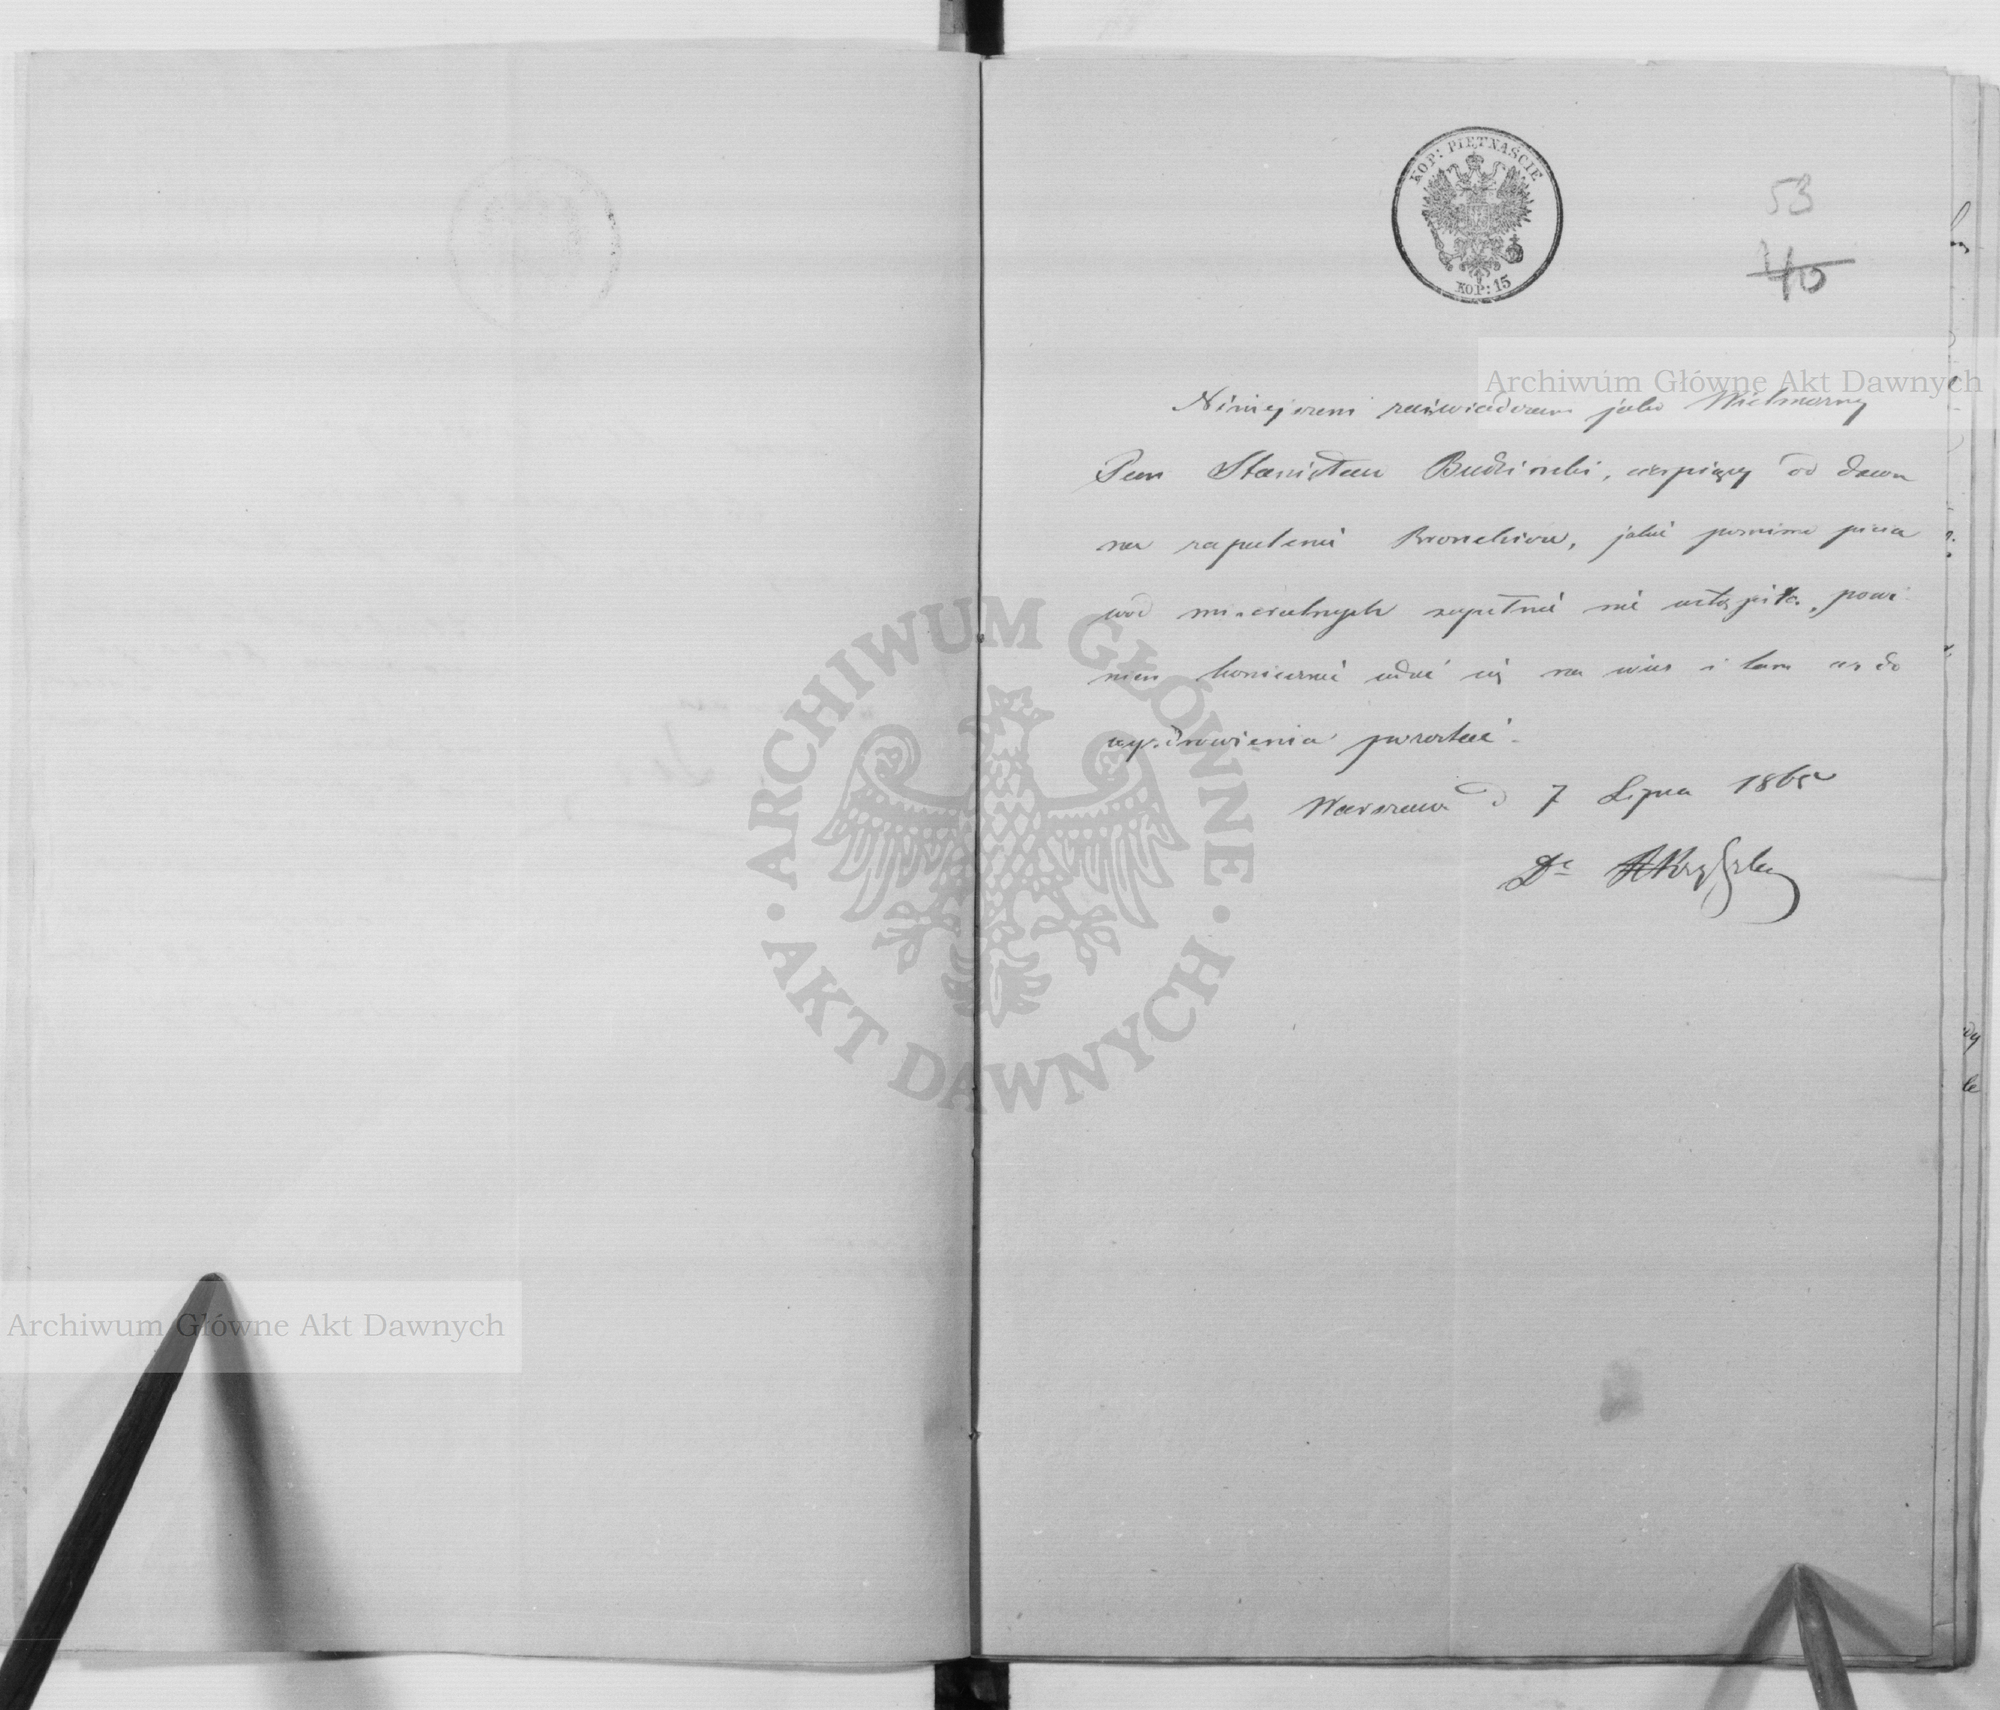 KOP: PIĘTNAŚCIE
KOP: 15
53
40
Archiwum Główne Akt Dawnych
Niniejszem zaświadczam jako Wielmożny
Pan Stanisław Budziński, cierpiący od dawna
na zapalenie Bronchiów, jakie pomimo picia
wód mineralnych zupełnie nie ustąpiło, powi-
nien koniecznie udać się na wieś i tam aż do
wyzdrowienia pozostać.
Warszawa d 7 Lipca 1865
Dr
ARCHIWUM GŁÓWNE AKT DAWNYCH
Archiwum Główne Akt Dawnych